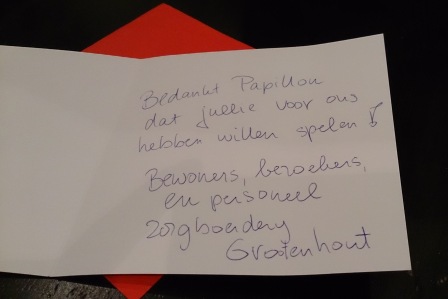 Bedankt Papillon
dat jullie voor ons
hebben willen spelen!
Bewoners, bezoekers,
en personeel
zorgboerderij
Grootenhout